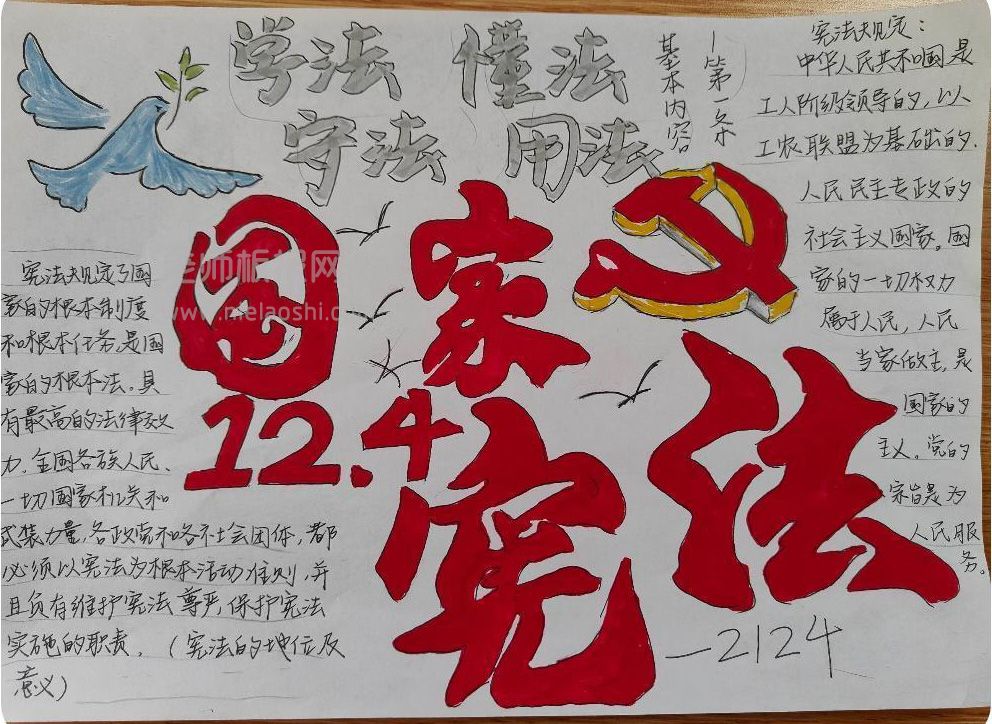 学法 懂法
守法 用法
国家
12.4
宪法
—第一条
基本内容
宪法规定：
中华人民共和国是
工人阶级领导的，以
工农联盟为基础的.
人民民主专政的
社会主义国家。国
家的一切权力
属于人民，人民
当家做主，是
国家的
主义。党的
宗旨是为
人民服
务。
宪法规定了国
家的根本制度
和根本任务是国
家的根本法，具
有最高的法律效
力，全国各族人民、
一切国家机关和
武装力量，各政党和各社会团体，都
必须以宪法为根本活动准则，并
且负有维护宪法尊严，保护宪法
实施的职责，（宪法的地位及
意义）
—2124
老师板报网
www.melaoshi.com